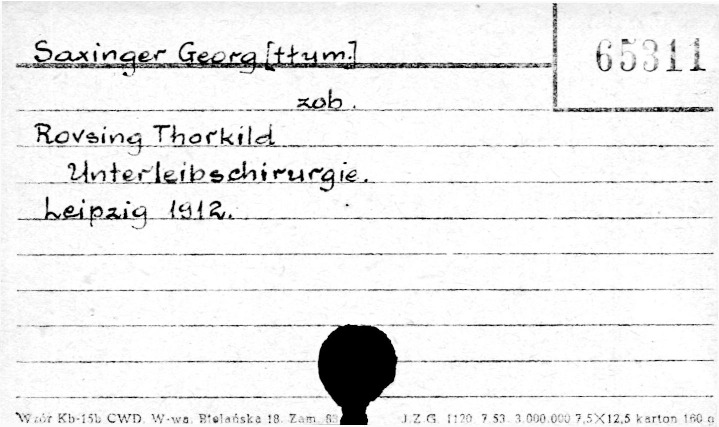 Saxinger Georg [ttum.]
65311
zob.
Rovsing Thorkild
Unterleibschirurgie.
Leipzig 1912.
Wzór Kb-15b CWD, W-wa, Bielańska 18. Zam. J.Z.G. 1120 7.53. 3.000.000 7,5X12,5 karton 160 g